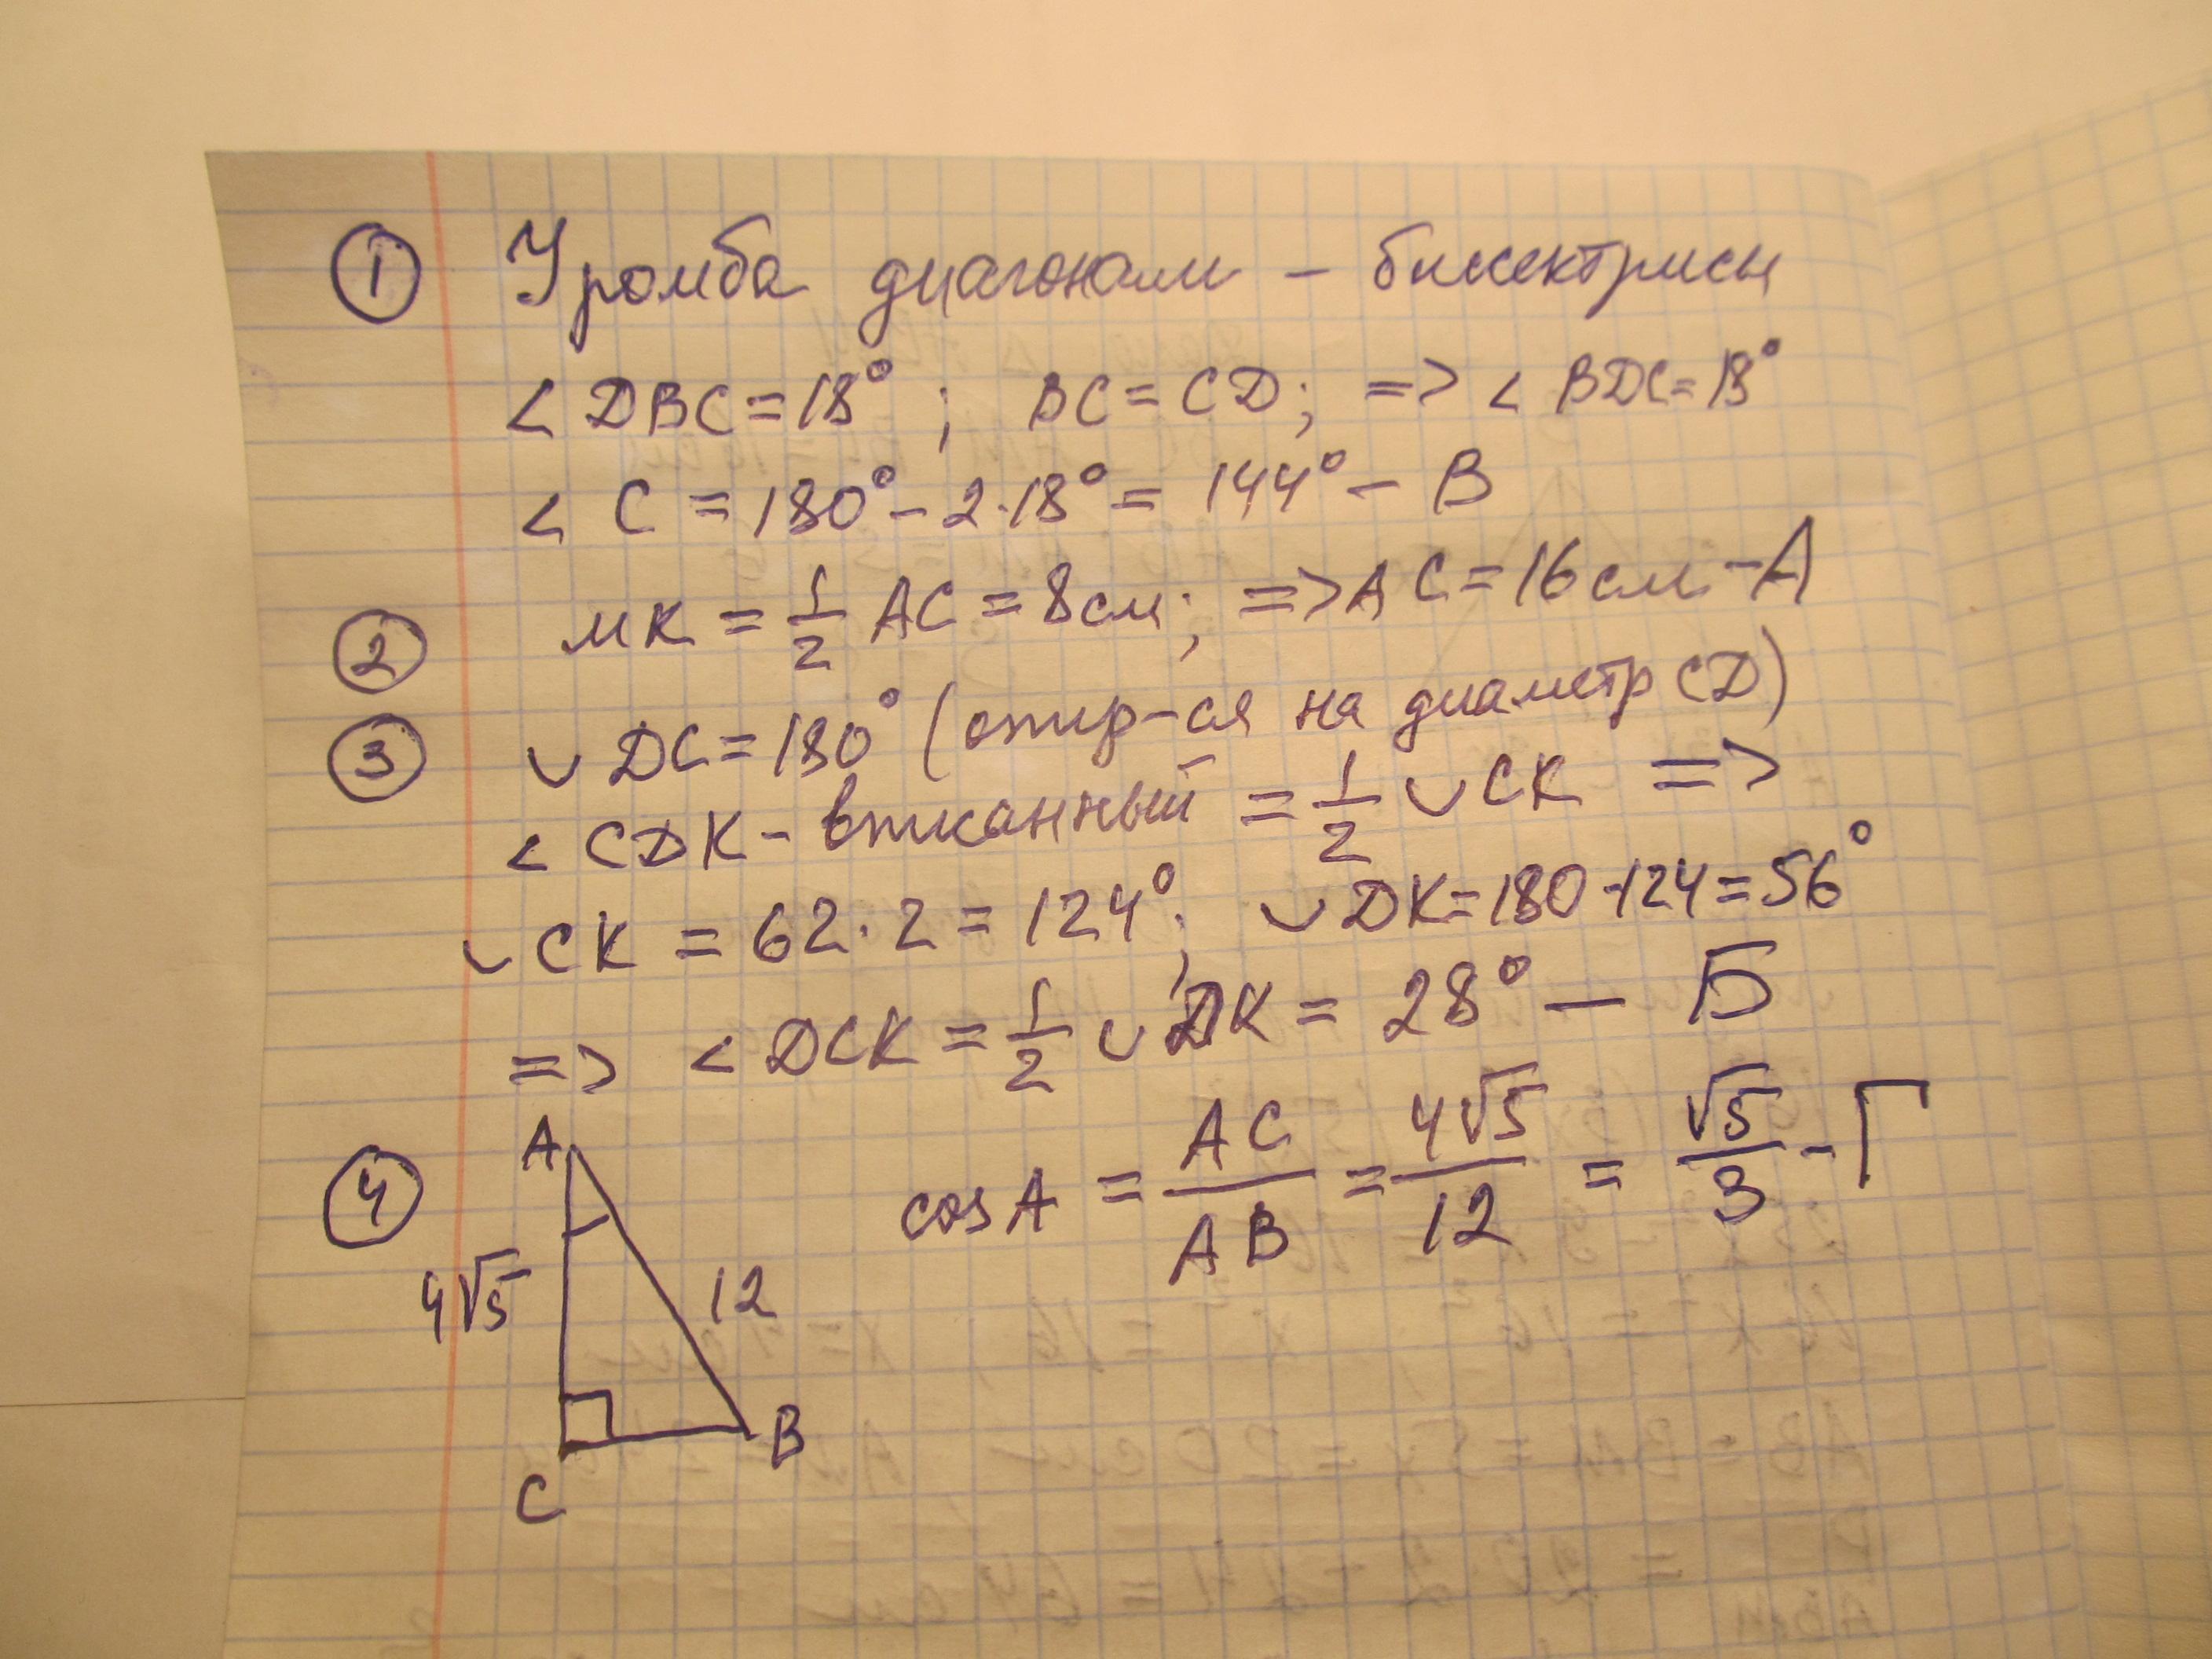 ① У ромба диагонали – биссектрисы
< DBC = 18° ; BC = CD; => < BDC = 18°
< C = 180° – 2·18° = 144° – В
② MK = 1/2 AC = 8 см; => AC = 16 см – А
③ ∪ DC = 180° (опир-ся на диаметр CD)
< CDK – вписанный = 1/2 ∪ CK =>
∪ CK = 62·2 = 124°; ∪ DK = 180 – 124 = 56°
=> < DCK = 1/2 ∪ DK = 28° – Б
④ cos A = AC/AB = 4√5/12 = √5/3 – Г
A
4√5
12
B
C